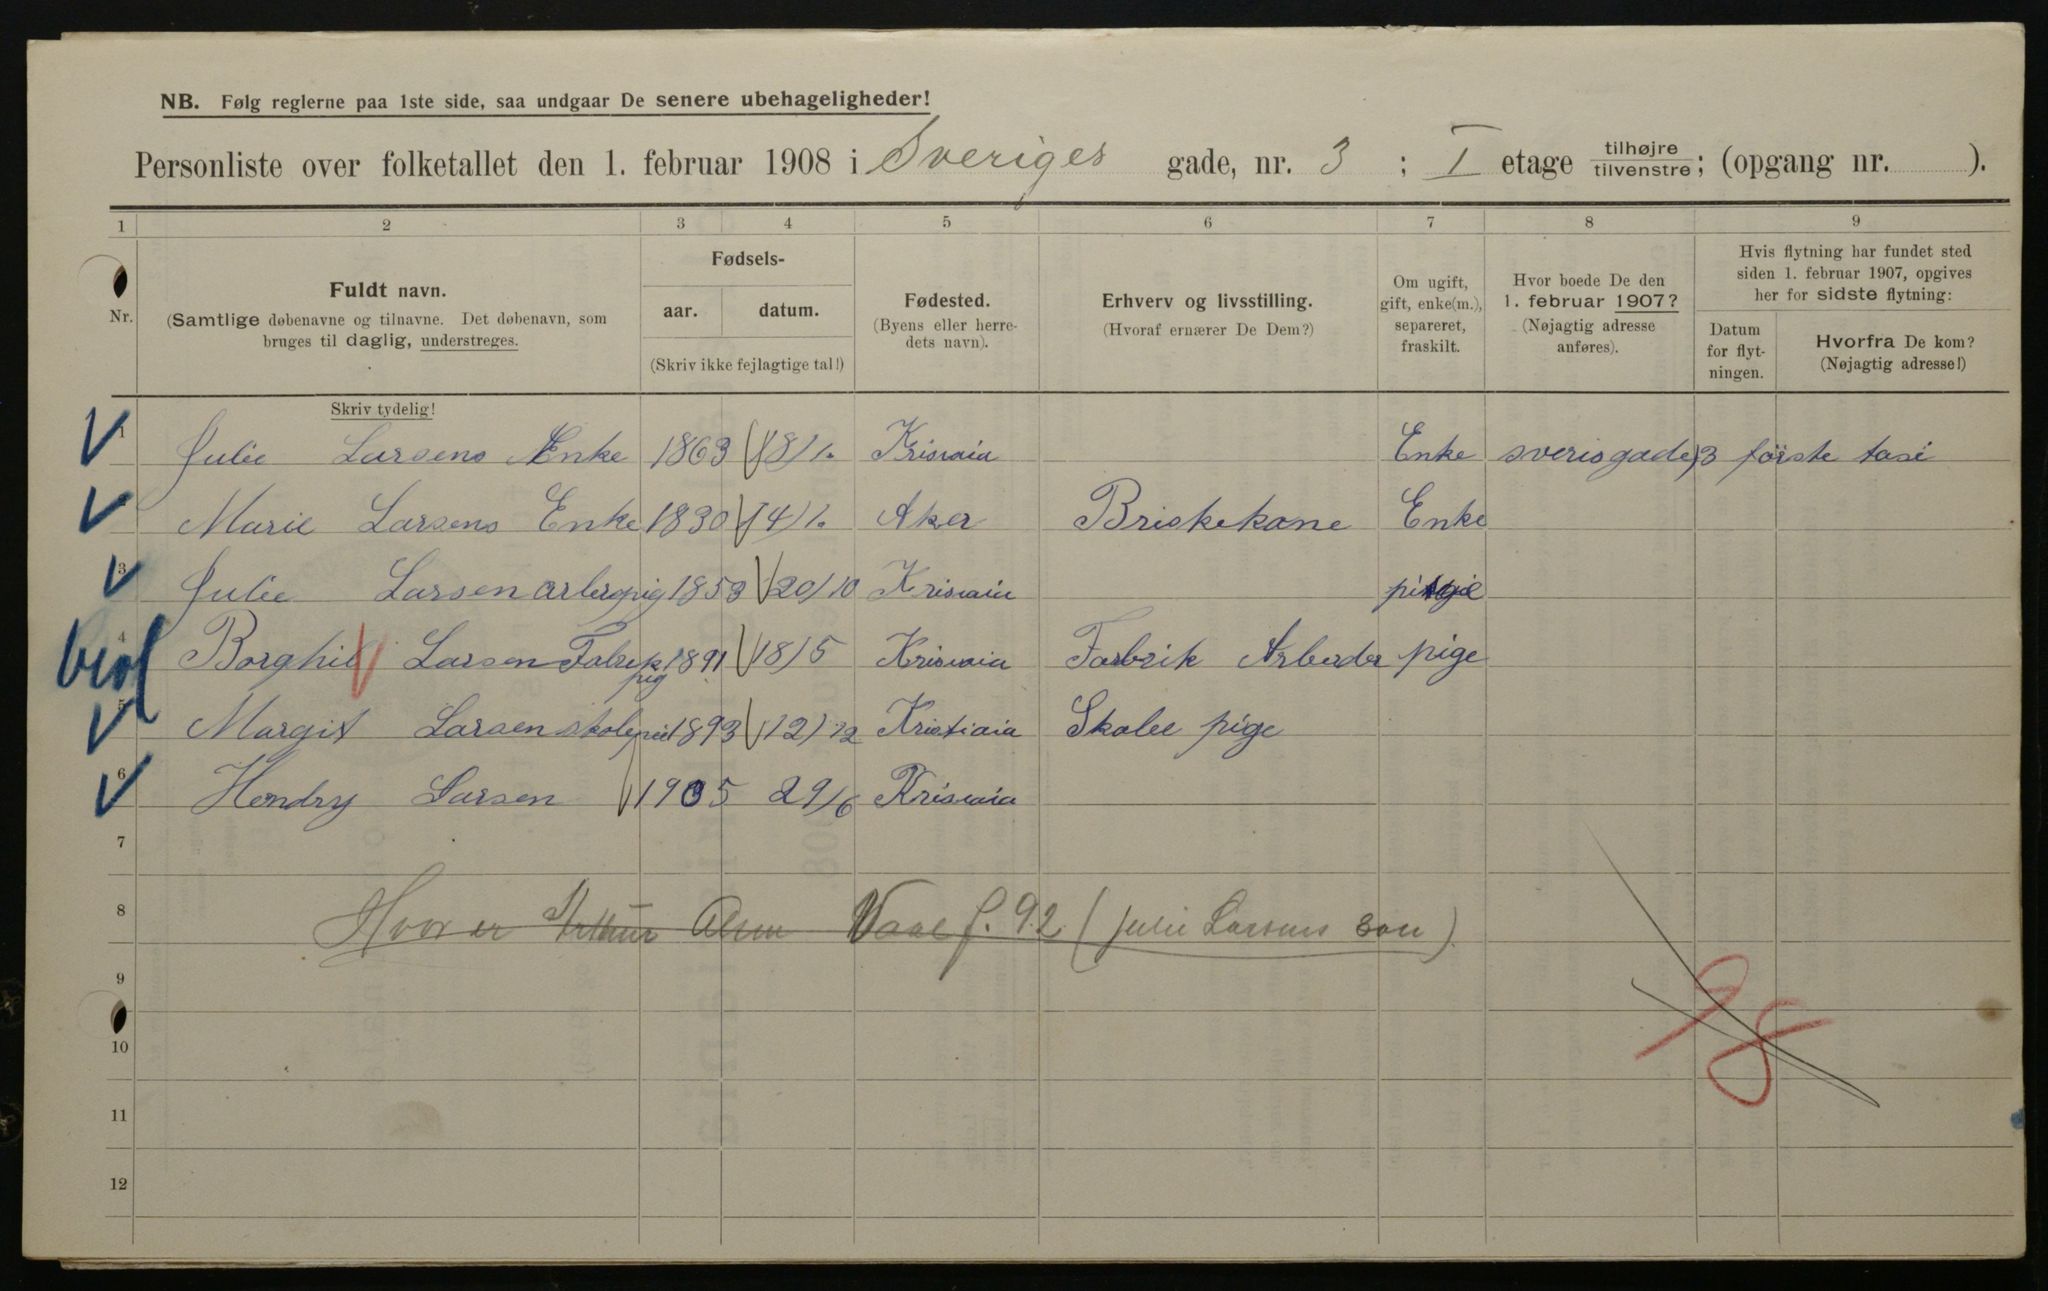 NB. Følg reglerne paa 1ste side, saa undgaar De senere ubehageligheder!
Personliste over folketallet den 1. februar 1908 i Sveriges gade, nr. 3 ; I etage tilhøjre tilvenstre; (opgang nr. ).
1 2 3 4 5 6 7 8 9
Nr.
Fuldt navn.
(Samtlige døbenavne og tilnavne. Det døbenavn, som
bruges til daglig, understreges.
Skriv tydelig!
Fødsels-
aar. datum.
(Skriv ikke fejlagtige tal!)
Fødested.
(Byens eller herre-
dets navn).
Erhverv og livsstilling.
(Hvoraf ernærer De Dem?)
Om ugift,
gift, enke(m.),
separeret,
fraskilt.
Hvor boede De den
1. februar 1907?
(Nøjagtig adresse
anføres).
Hvis flytning har fundet sted
siden 1. februar 1907, opgives
her for sidste flytning:
Datum
for flyt-
ningen.
Hvorfra De kom?
(Nøjagtig adresse!)
1 Julie Larsens Enke 1863 18/1. Krisiaia Enke 3 förste
Marie Larsens Enke 1830 14/1. Aker Enke
3 Julie Larsen 1853 20/10 Krisiaia
4 Borghil Larsen 1891 18/5 Krisiaia Farbrik Arberder pige
5 Margit Larsen 1893 12/12 Kristiaia Skolee pige
6 Hendry Larsen 1905 29/6 Krisiaia
7
8 Hvor er Arthur Vaae f. 92 (Julie Larsens søn)
9
98
10
11
12